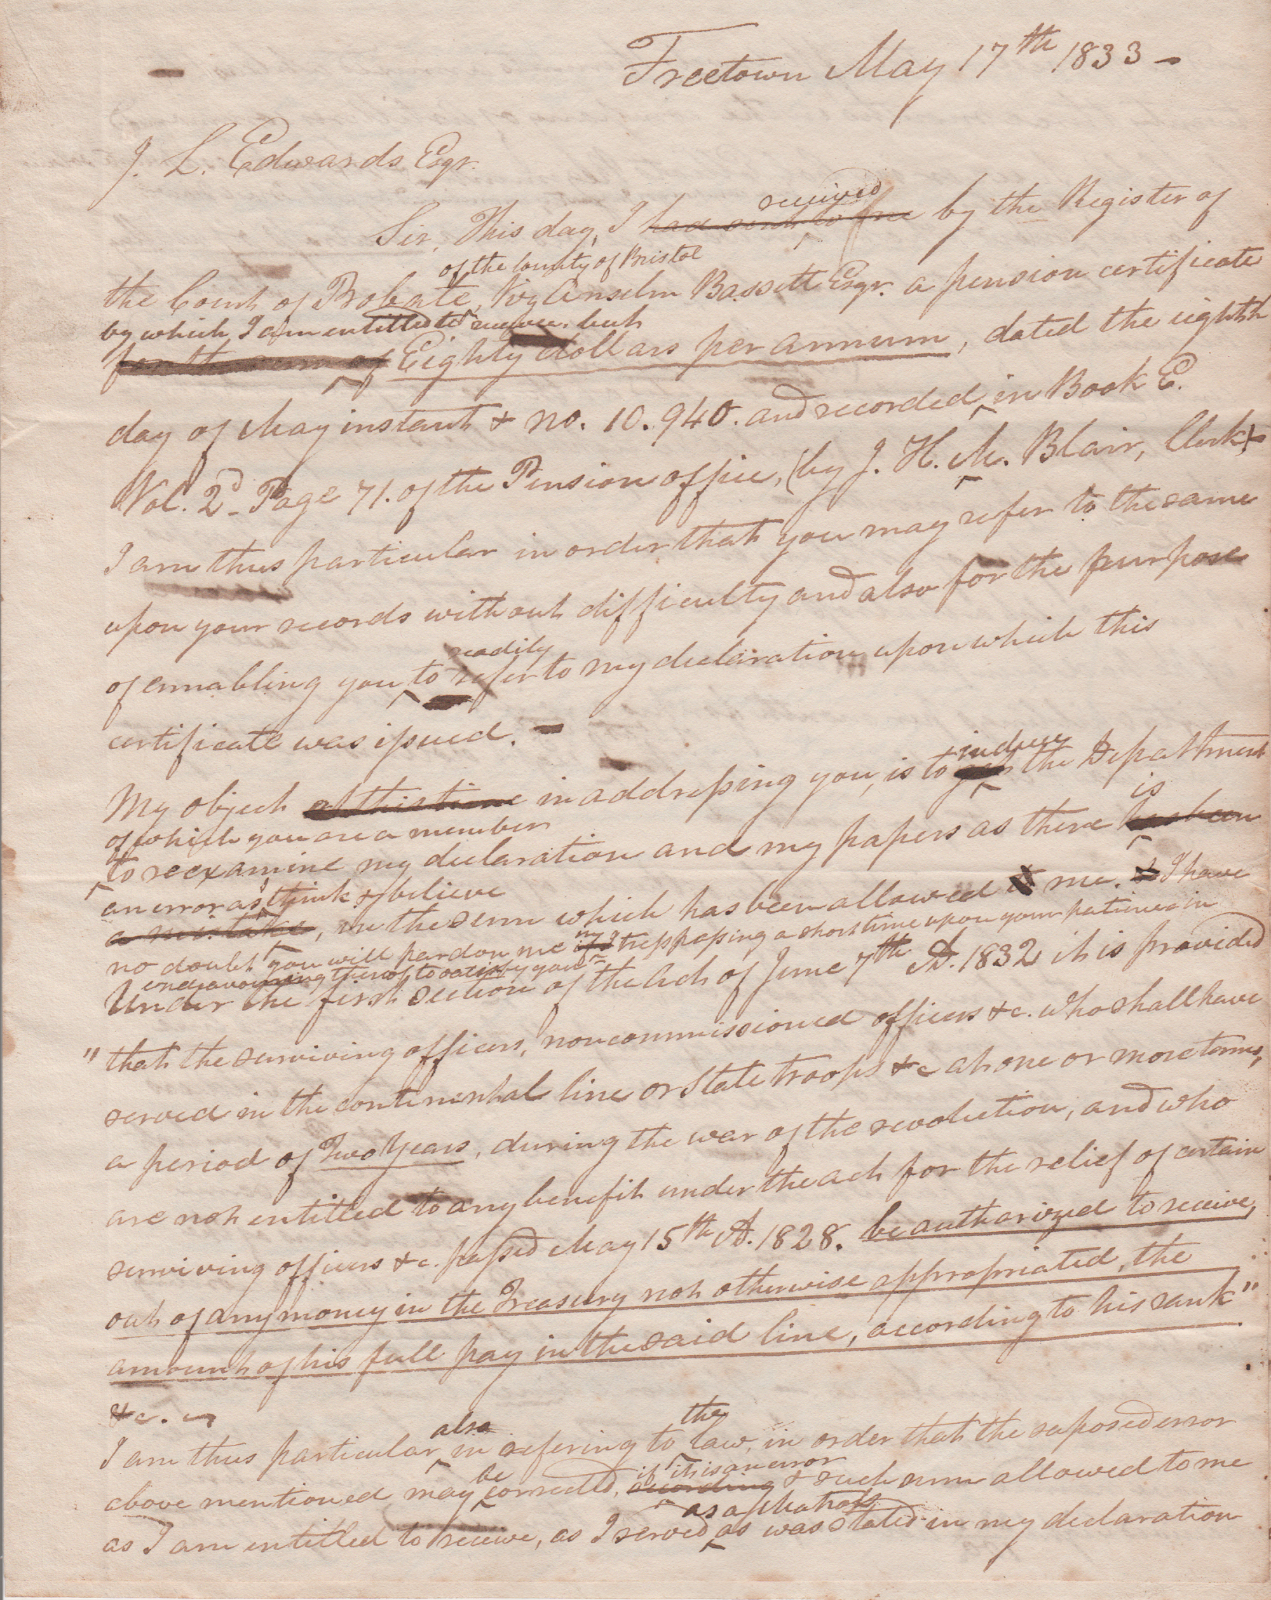 Freetown May 17th 1833 -
J. L. Edwards Esqr.
received
Sir, This day, I had sent to me by the Register of
of the County of Bristol
the Court of Probate, Viz Anselm Bassett Esqr. a pension certificate
by which I am entitled to receive but
for the sum of Eighty dollars per annum, dated the eighth
day of May instant & no. 10.940. and recorded in Book E.
Vol. 2d Page 71. of the Pension office, (by J. H. M. Blair, Clerk)
I am thus particular in order that you may refer to the same
upon your records without difficulty and also for the purpose
readily
of ennabling you to refer to my declaration upon which this
certificate was issued. -
induce
My object at this time in addressing you, is to get the Department
of which you are a member
is
to reexamine my declaration and my papers as there has been
an error as I think & believe
a mistake, in the sum which has been allowed to me. & I have
no doubt you will pardon me in if I trespassing a short time upon your patience in
endeavouring thereof to satisfy you
Under the first section of the Act of June 7th A.D. 1832 it is provided
"that the surviving officers, noncommissioned officers &c. who shall have
served in the continental line or State troops &c at one or more terms,
a period of Two Years, during the war of the revolution, and who
are not entitled to any benefit under the act for the relief of certain
surviving officers &c. passed May 15th A.D. 1828. be authorized to receive,
out of any money in the Treasury not otherwise appropriated, the
amount of his full pay in the said line, according to his rank"
&c.
also the
I am thus particular, in refering to law, in order that the suposed error
be if it is an error
above mentioned may corrected, according & such sum allowed to me
as
as I am entitled to receive, as I served, as was stated in my declaration